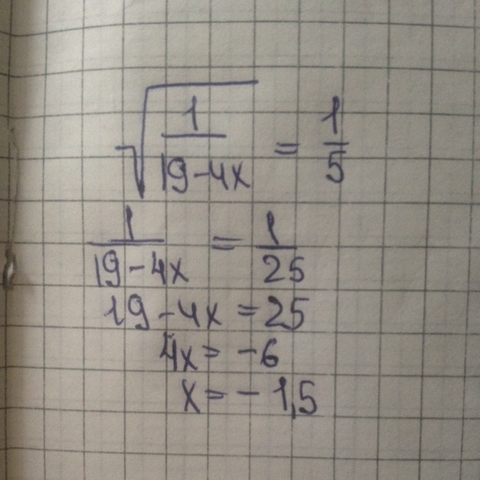 √(1/(19-4x)) = 1/5
1/(19-4x) = 1/25
19-4x = 25
4x = -6
x = -1,5